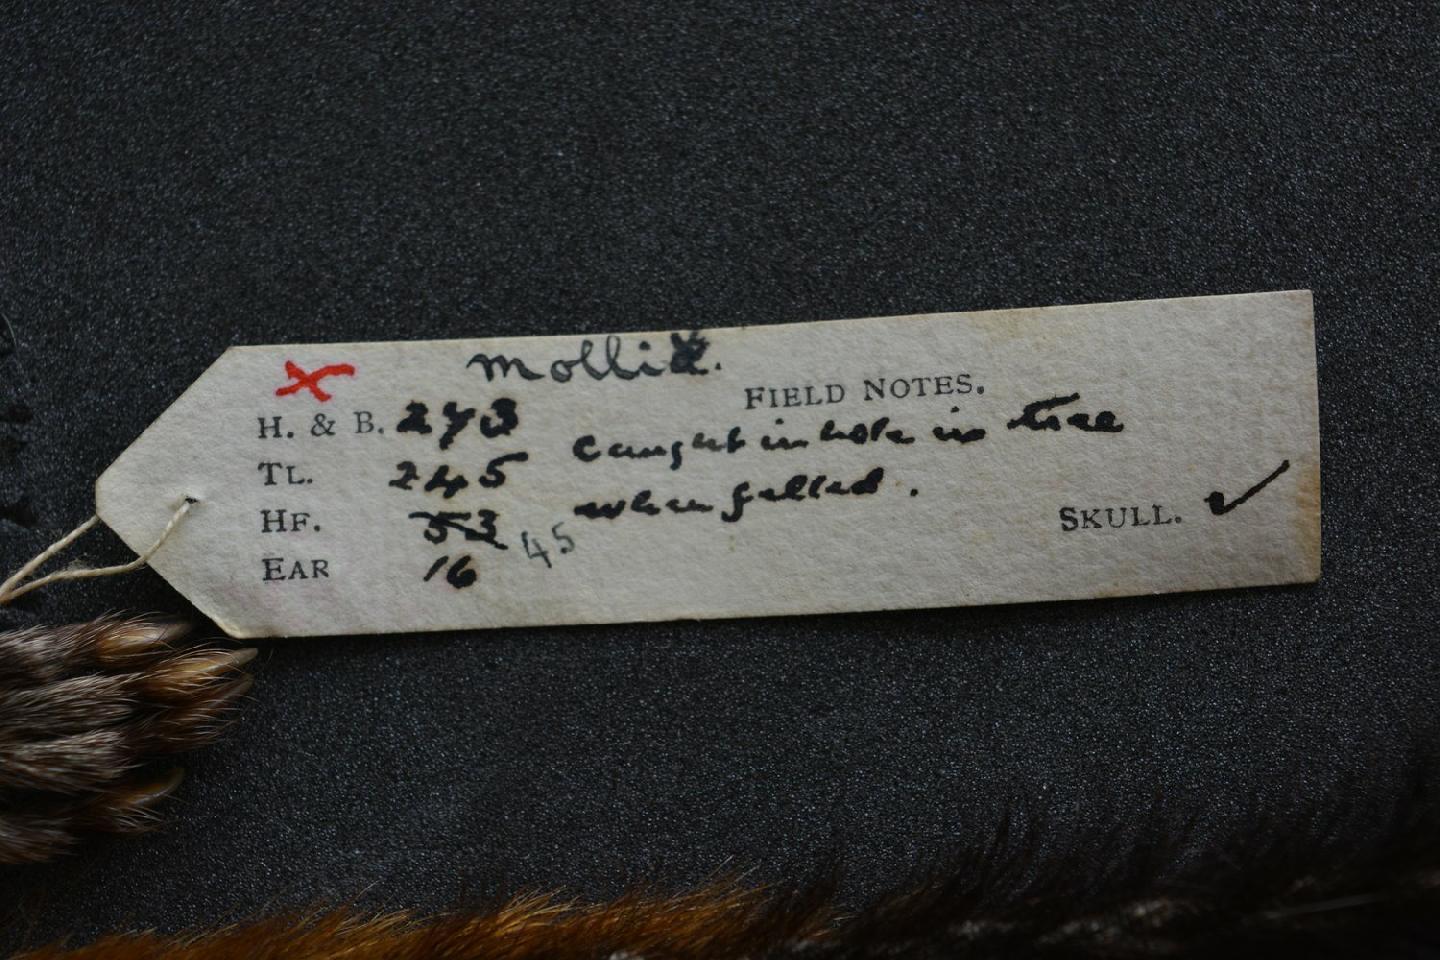 x
mollis.
FIELD NOTES.
H. & B. 273
caught in hole in tree
TL. 245
when felled.
HF. 53 45
SKULL. ✓
EAR 16